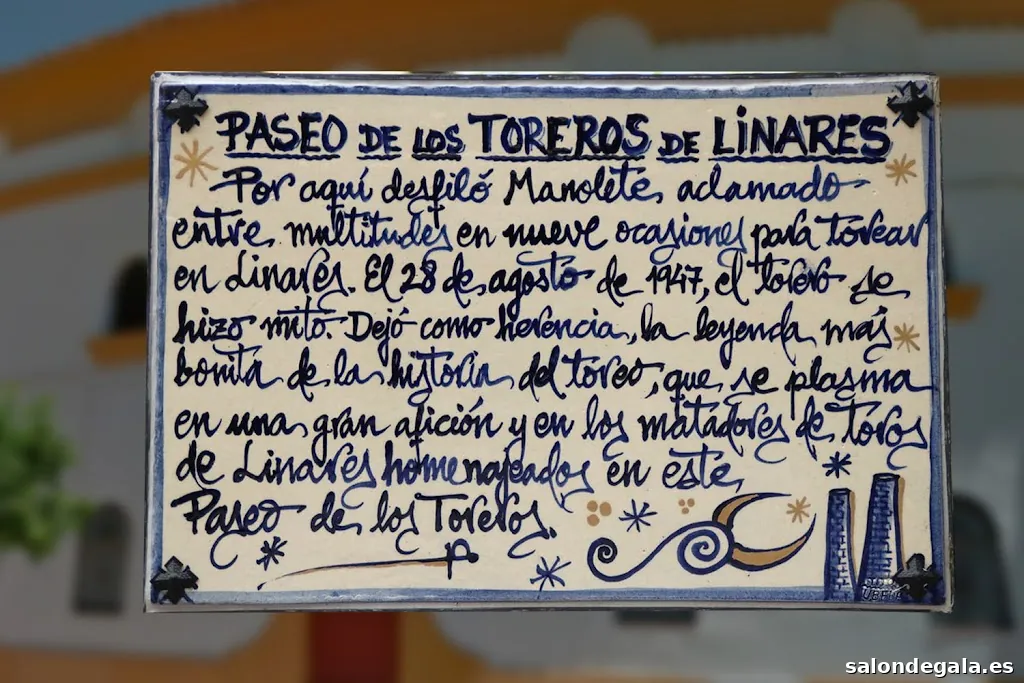 PASEO DE LOS TOREROS DE LINARES
Por aquí desfiló Manolete, aclamado
entre multitudes en nueve ocasiones para torear
en Linares. El 28 de agosto de 1947, el torero se
hizo mito. Dejó como herencia, la leyenda más
bonita de la historia del toreo, que se plasma
en una gran afición y en los matadores de toros
de Linares homenajeados en este
Paseo de los Toreros.
salondegala.es